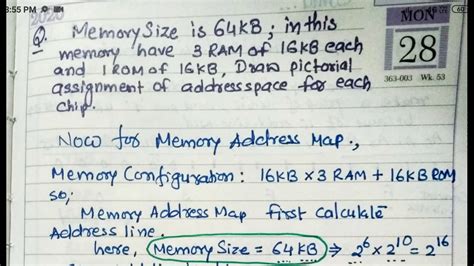 3:55 PM
60
2020
MON
28
363-003 Wk. 53
Q. Memory Size is 64KB; in this
memory have 3 RAM of 16KB each
and 1 ROM of 16KB, Draw pictorial
assignment of address space for each
chip.
Now for Memory Address Map.,
Memory Configuration: 16KB × 3 RAM + 16KB ROM
so,
Memory Address Map first calculate
Address line.
here, Memory Size = 64KB ⇒ 2⁶ × 2¹⁰ = 2¹⁶